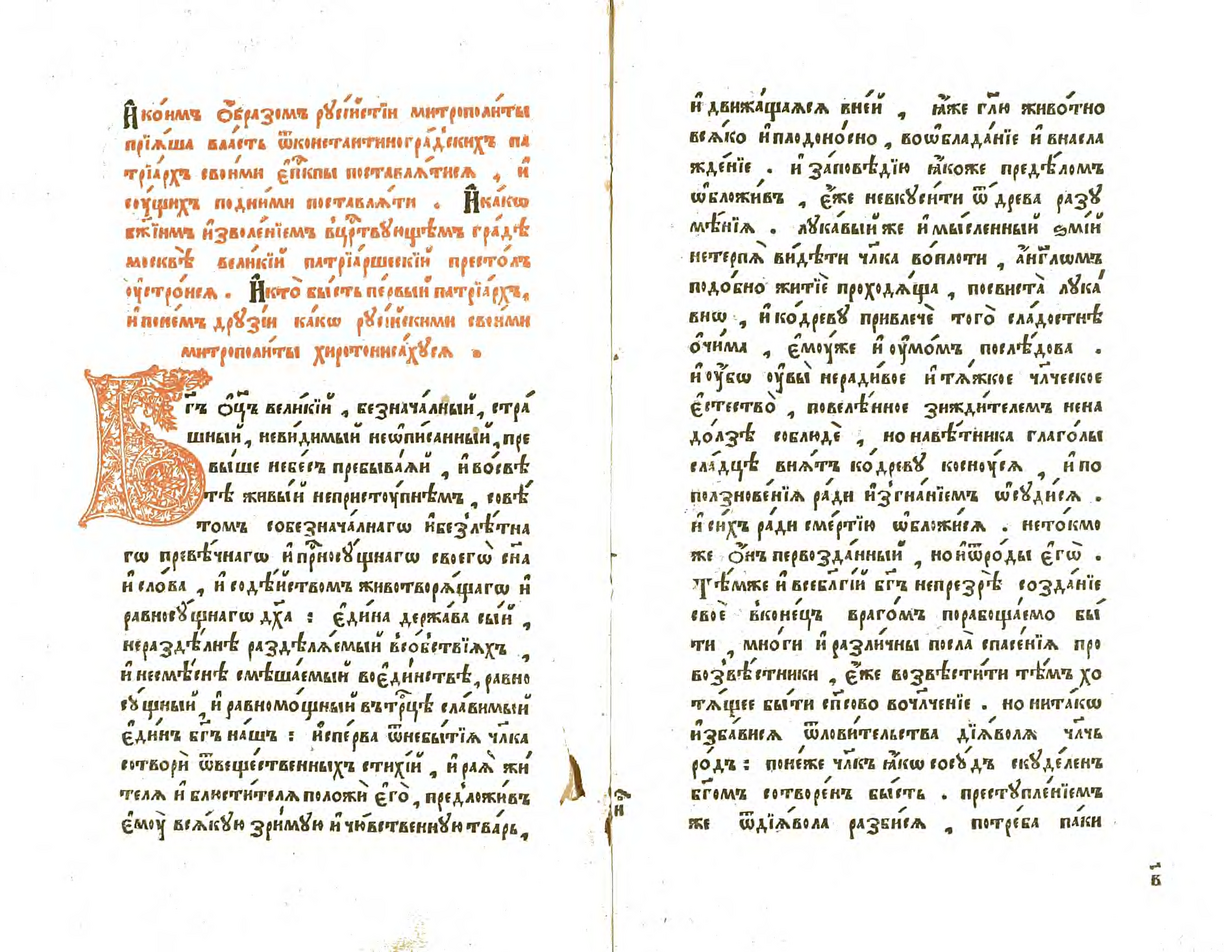 И҆ко́имъ ѻ҆́бразомъ рꙋсі́йстїи митрополи́ты
прїѧ́ша вла́сть ѿконстантиногра́дскихъ па
трїа́рхъ свои́ми є҆пⷭ҇кпы поставлѧ́тисѧ , и҆
сꙋ́щихъ подни́ми поставлѧ́ти . И҆ка́кѡ
бж҃їимъ и҆зволе́нїемъ вцрⷭ҇твꙋющемъ гра́дѣ
москвѣ̀ вели́кїй патрїа́ршескїй престо́лъ
оу҆стро́исѧ . И҆кто̀ бы́сть пе́рвый патрїа́рхъ,
и҆поне́мъ дрꙋзі́и ка́кѡ рꙋсі́йскими свои́ми
митрополи́ты хиротониса́хꙋсѧ .
Бг҃ъ ѻ҆ц҃ъ вели́кїй , безнача́лный, стра́
шный, неви́димый неѡпи́санный, пре
вы́ше небе́съ пребыва́ѧй , и҆во́свѣ
тѣ живы́й непристꙋ́пнѣмъ , совѣ́
томъ собезнача́лнагѡ и҆безлѣ́тна
гѡ превѣ́чнагѡ и҆прⷭ҇носꙋ́щнагѡ своегѡ̀ сн҃а
и҆ сло́ва , и҆ содѣ́йствомъ животворѧ́щагѡ и҆
равносꙋ́щнагѡ дх҃а : є҆ди́на держа́ва сы́й ,
нераздѣ́лнѣ раздѣлѧ́емый всо́бствїѧхъ ,
и҆ несмѣ́снѣ смѣша́емый воє҆ди́нствѣ, равно
сꙋ́щный, и҆ равномо́щный вътрⷪ҇цѣ сла́вимый
є҆ди́нъ бг҃ъ на́шъ : и҆спе́рва ѿнебытїѧ̀ чл҃ка
сотворѝ ѿвеще́ственныхъ стихі́й , и҆ раѧ̀ жи́
телѧ и҆ блюсти́телѧ положѝ є҆го̀ , предложи́въ
є҆мꙋ̀ всѧ́кꙋю зри́мꙋю и҆ чю́вственнꙋю тва́рь,
и҆ дви́жащаѧсѧ вне́й , ꙗ҆́же гл҃ю живо́тно
всѧ́ко и҆плодоно́сно , воѡблада́нїе и҆ внасла
жде́нїе . и҆ за́повѣдїю ꙗ҆́коже предѣ́ломъ
ѡ҆бложи́въ , є҆́же невкꙋси́ти ѿ дре́ва разꙋ
мѣ́нїѧ . лꙋка́вый же и҆ мы́сленный ѕмі́й
нетерпѧ̀ ви́дѣти чл҃ка во́плоти , а҆́нг҃лѡмъ
подо́бно житїѐ проходѧ́ща , посвиста̀ лꙋка́
вѡ , и҆ кодре́вꙋ привлечѐ того̀ сла́достнѣ
о҆чи́ма , є҆мꙋ́же и҆ оу҆мо́мъ послѣ́дова .
и҆ оу҆́бѡ оу҆вы̀ неради́вое и҆ тѧ́жкое чл҃ческое
є҆стество̀ , повелѣ́нное зижди́телемъ нена
до́лзѣ соблюдѐ , но навѣ́тника глаго́лы
сла́дцѣ внѧ́тъ ко́древꙋ коснꙋ́сѧ , и҆ по
ползнове́нїѧ ра́ди и҆згна́нїемъ ѡ҆сꙋди́сѧ .
и҆ си́хъ ра́ди сме́ртїю ѡ҆бложи́сѧ . нето́кмо
же ѻ҆́нъ первозда́нный , но и҆ ѿро́ды є҆гѡ̀ .
Тѣ́мже и҆ всебл҃гі́й бг҃ъ непрезрѣ̀ созда́нїе
своѐ вконе́цъ враго́мъ порабоща́емо бы́
ти , мно́ги и҆ разли́чны посла̀ спасе́нїѧ про
возвѣ́стники , є҆́же возвѣсти́ти тѣ́мъ хо
тѧ́щее бы́ти сп҃сово вочл҃че́нїе . но нита́кѡ
и҆зба́висѧ ѿлови́тельства дїѧ́вола чл҃чь
ро́дъ : поне́же чл҃къ ꙗ҆́кѡ сосꙋ́дъ скꙋде́ленъ
бг҃омъ сотворе́нъ бы́сть . престꙋпле́нїемъ
же ѿдїѧ́вола разби́сѧ , потре́ба па́ки
в҃